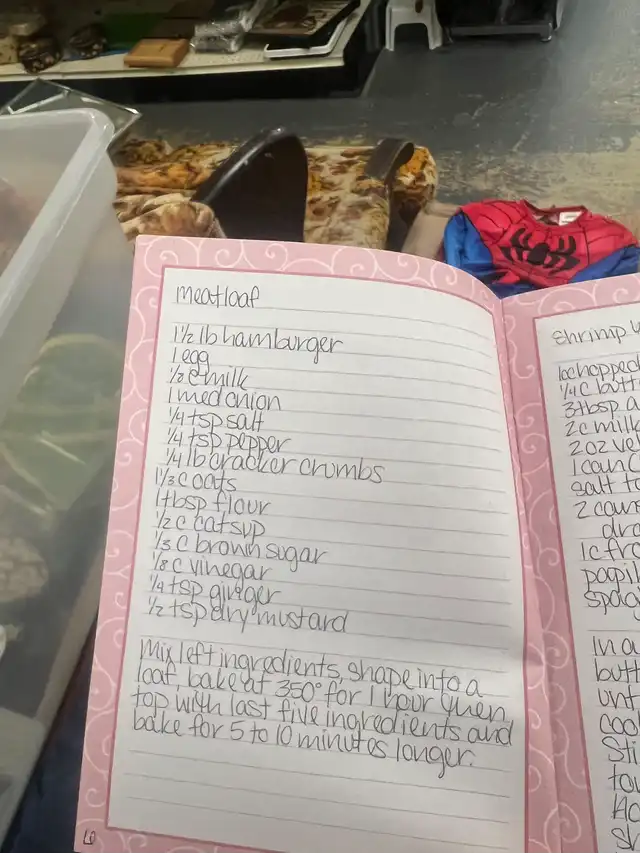 meatloaf
1 1/2 lb hamburger
1 egg
1/2 c milk
1 med onion
1/4 tsp salt
1/4 tsp pepper
1/4 lb cracker crumbs
1 1/3 c oats
1 tbsp flour
1/2 c catsup
1/3 c brown sugar
1/8 c vinegar
1/4 tsp ginger
1/2 tsp dry mustard
Mix left ingredients, shape into a
loaf, bake at 350° for 1 hour then
top with last five ingredients and
bake for 5 to 10 minutes longer.
shrimp
1/4 c butt
3 tbsp
2 c milk
2 oz ve
salt to
2 cow
1 c fro
In a
butt
unt